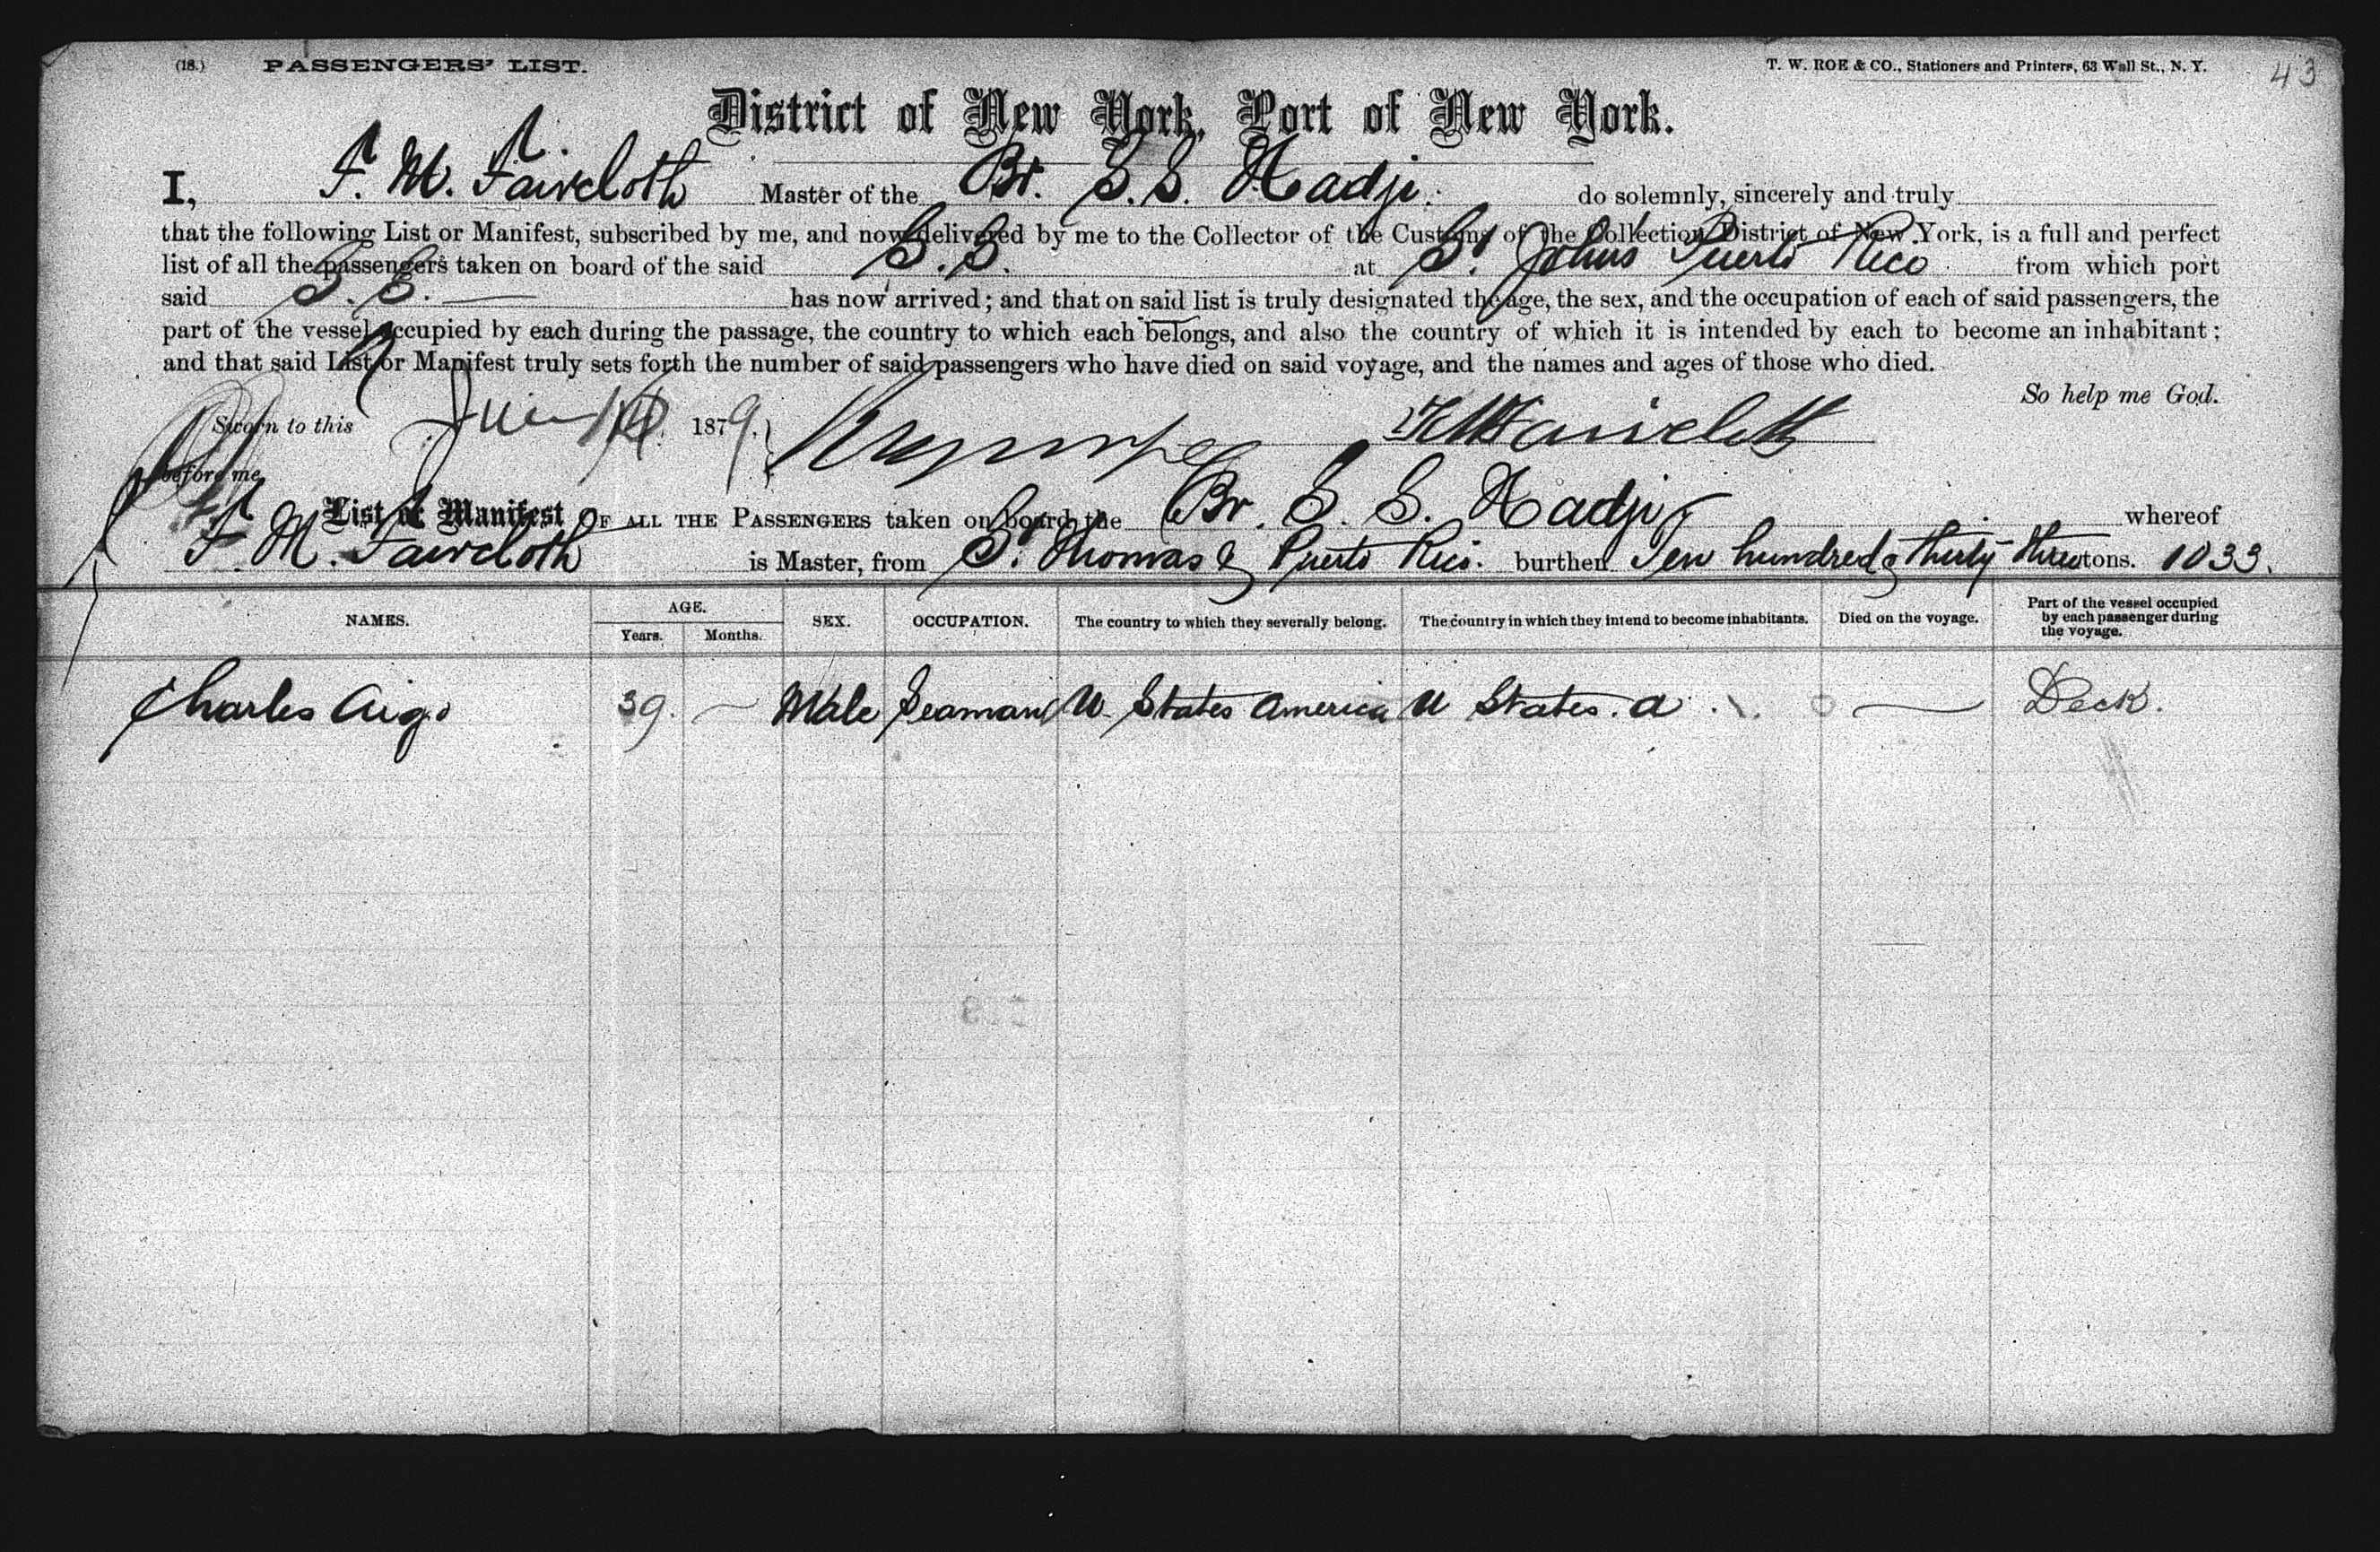 (18.) PASSENGERS' LIST. T. W. ROE & CO., Stationers and Printers, 63 Wall St., N. Y. 43
District of New York, Port of New York.
I, F. M. Faircloth Master of the Br. S.S. Hadji. do solemnly, sincerely and truly
that the following List or Manifest, subscribed by me, and now delivered by me to the Collector of the Customs of the Collection District of New York, is a full and perfect
list of all the passengers taken on board of the said S.S. at St. Johns Puerto Rico from which port
said S.S. has now arrived; and that on said list is truly designated the age, the sex, and the occupation of each of said passengers, the
part of the vessel occupied by each during the passage, the country to which each belongs, and also the country of which it is intended by each to become an inhabitant;
and that said List or Manifest truly sets forth the number of said passengers who have died on said voyage, and the names and ages of those who died.
So help me God.
Sworn to this June 1879. F M Faircloth
before me
List or Manifest OF ALL THE PASSENGERS taken on board the Br. S. S. Hadji whereof
F. M. Faircloth is Master, from St. Thomas & Puerto Rico. burthen Ten hundred & thirty three tons. 1033.
NAMES. AGE. SEX. OCCUPATION. The country to which they severally belong. The country in which they intend to become inhabitants. Died on the voyage. Part of the vessel occupied by each passenger during the voyage.
Years. Months.
Charles Aigo 39. — Male Seaman U States America U States. A. — Deck.